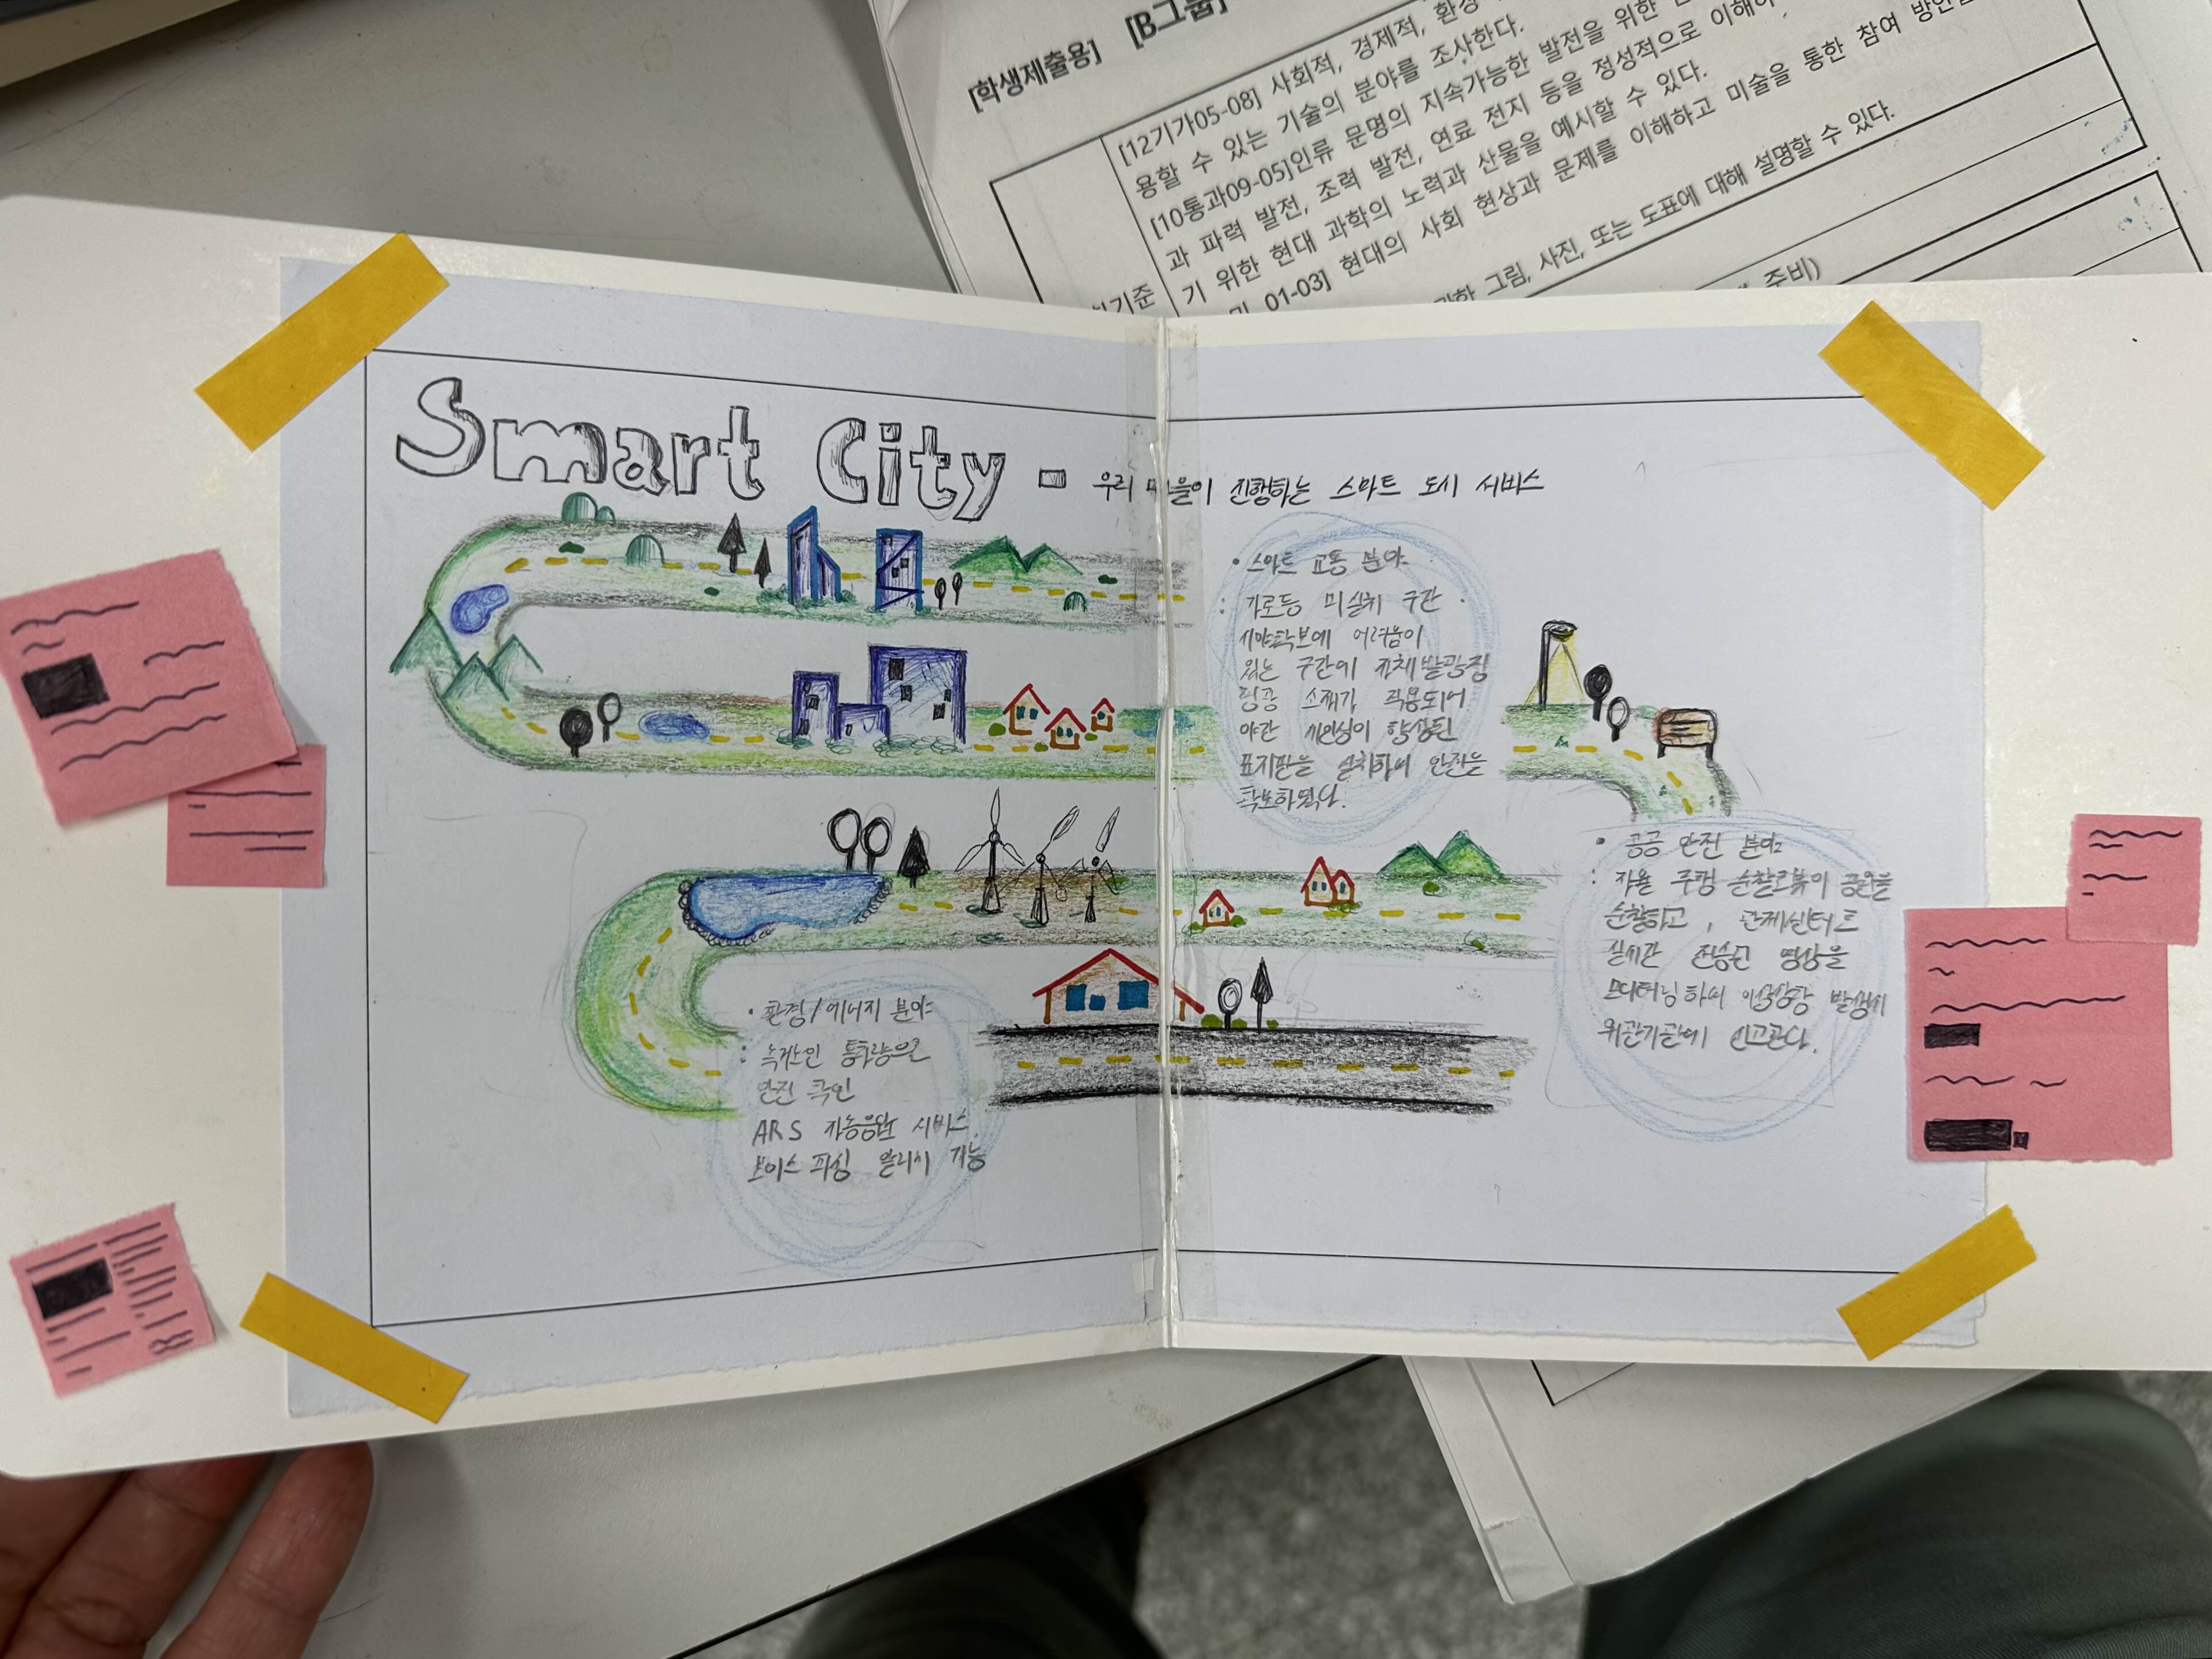 [학생제출용] [B그룹]
[12기가05-08] 사회적, 경제적, 환경
용할 수 있는 기술의 분야를 조사한다.
[10통과09-05]인류 문명의 지속가능한 발전을 위한
과 파력 발전, 조력 발전, 연료 전지 등을 정성적으로 이해하
기 위한 현대 과학의 노력과 산물을 예시할 수 있다.
01-03] 현대의 사회 현상과 문제를 이해하고 미술을 통한 참여 방안을
그림, 사진, 또는 도표에 대해 설명할 수 있다.
기준
준비)
Smart City - 우리 마을이 진행하는 스마트 도시 서비스
• 스마트 교통 분야
: 가로등 미설치 구간
시야확보에 어려움이
있는 구간에 자체발광형
형광 소재가 적용되어
야간 시인성이 향상된
표지판을 설치하여 안전을
확보하였다.
• 공공 안전 분야
: 자율 주행 순찰로봇이 공원을
순찰하고, 관제센터로
실시간 전송된 영상을
모니터링하여 이상상황 발생시
유관기관에 신고한다.
• 환경/에너지 분야
: 녹차인 통화량으로
안전 확인
ARS 자동응답 서비스
보이스 피싱 알리시 기능